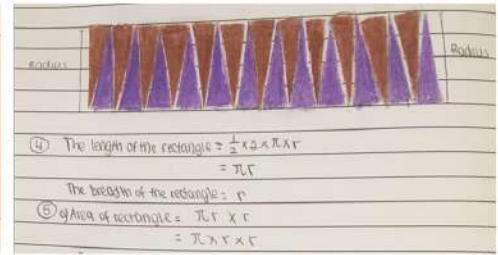 Radius
Radius
④ The length of the rectangle = 1/2 × 2 × π × r
= πr
The breadth of the rectangle = r
⑤ a) Area of rectangle = πr × r
= π × r × r